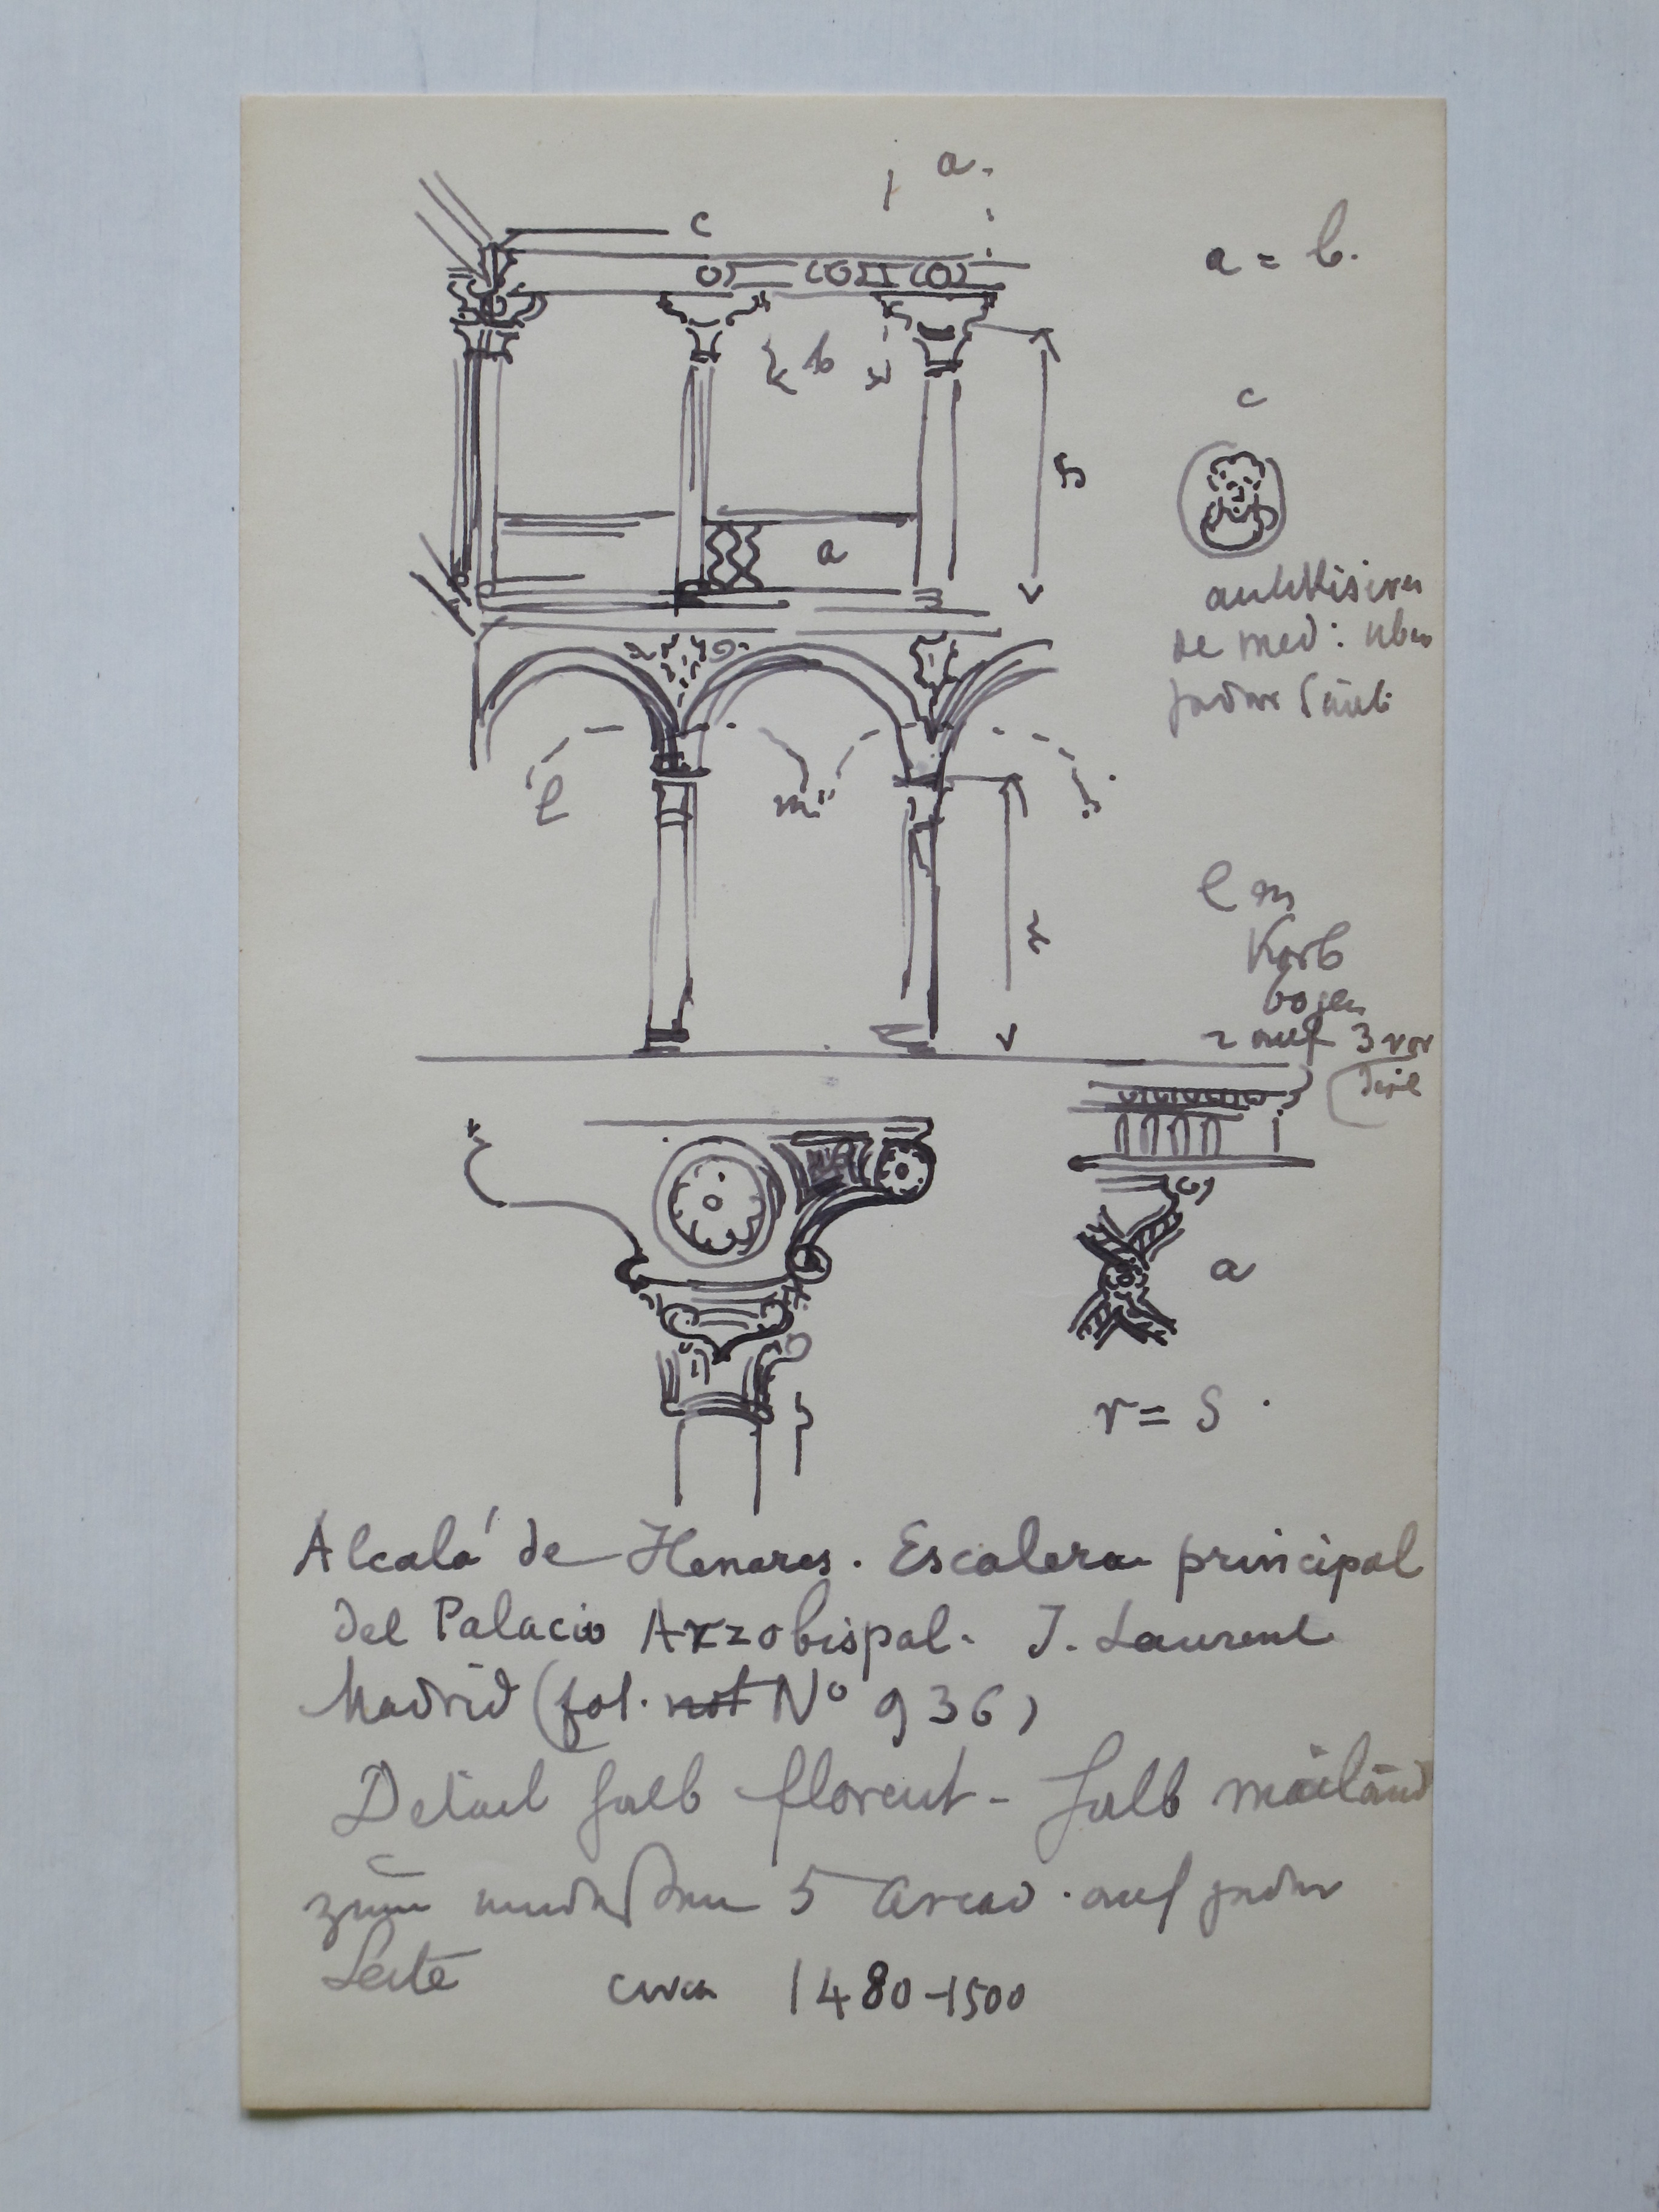 a.
c
a = b.
b
c
a
antikisiren
de med: über
jeder Säule
l
m
l m
Korb
bogen
2 auf 3 vor
a
r = s
Alcalá de Henares. Escalera principal
del Palacio Arzobispal. J. Laurent
Madrid (fol. not Nº 936)
Detail halb florent - halb mailänd
zum mindesten 5 Arcad. auf jeder
Seite circa 1480-1500